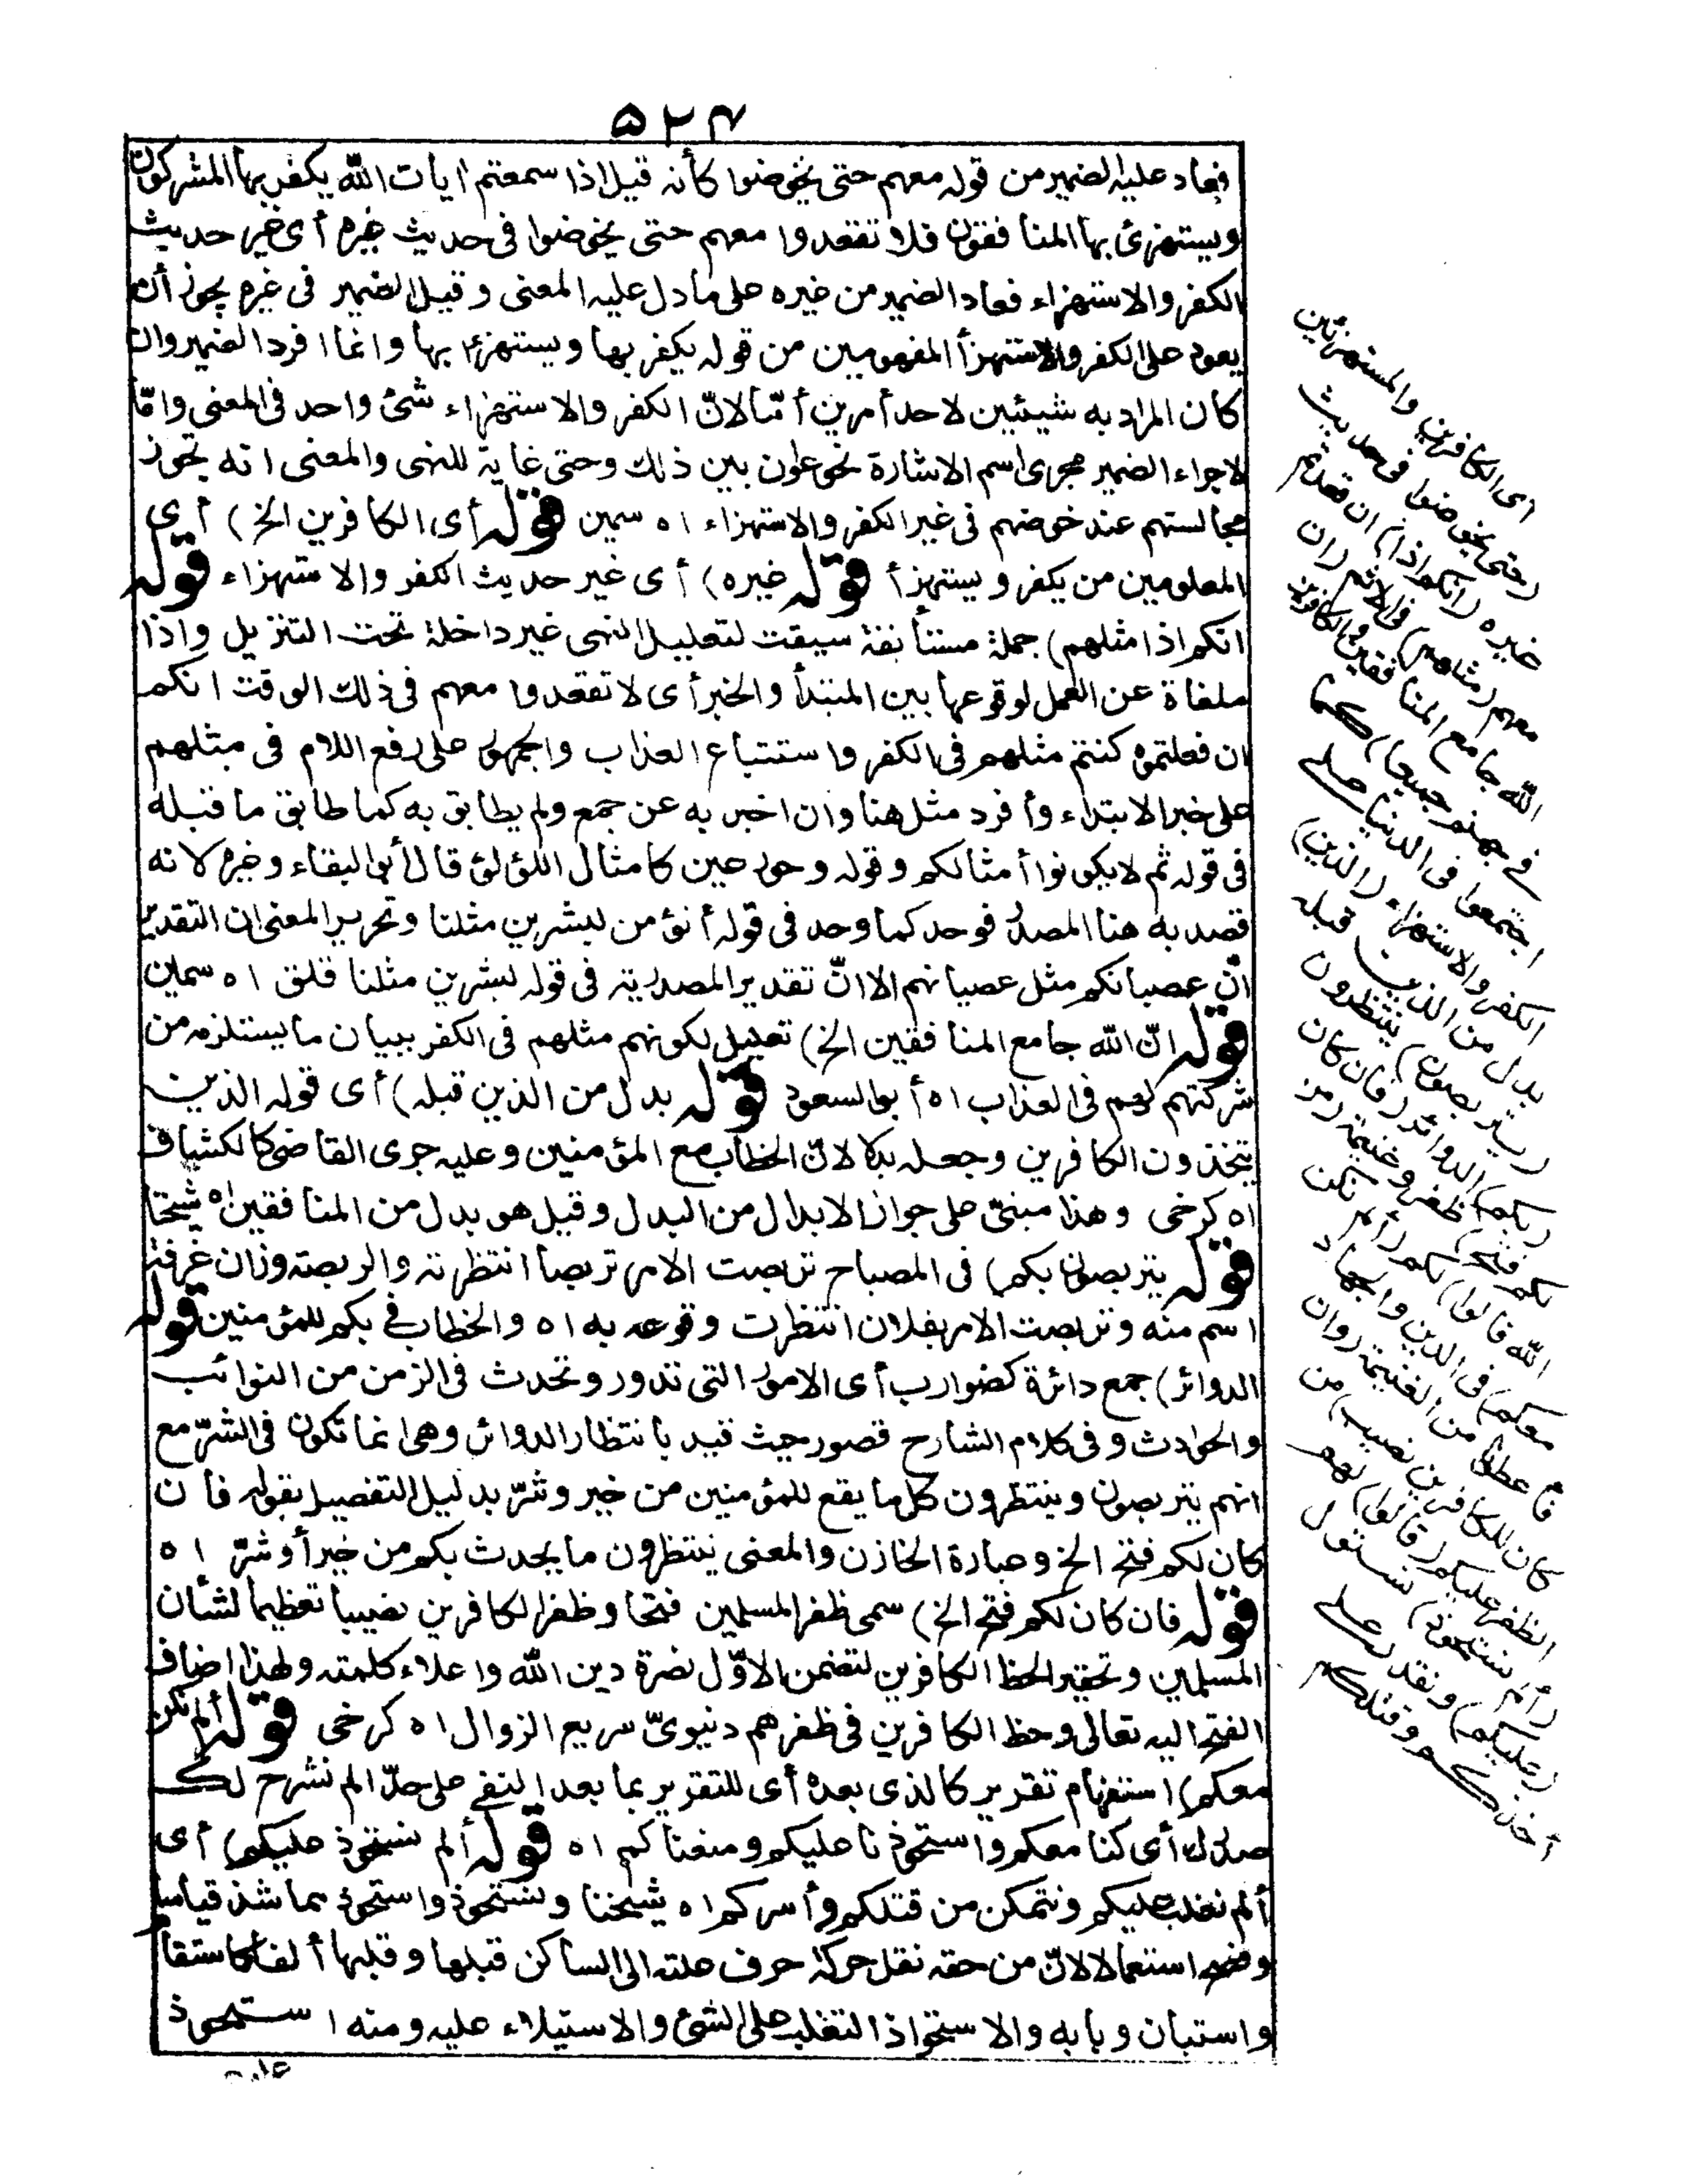 ۵۲۴
فعاد عليه الضمير من قوله معهم حتى يخوضوا كأنه قيل اذا سمعتم ايات الله يكفر بها المشركون
ويستهزئ بها المنافقون فلا تقعدوا معهم حتى يخوضوا فى حديث غيره أى غير حديث
الكفر والاستهزاء فعاد الضمير من غيره على ما دل عليه المعنى وقيل الضمير فى غيره يجوز أن
يعود على الكفر والاستهزأ المفهومين من قوله يكفر بها ويستهزئ بها وانما افرد الضمير وان
كان المراد به شيئين لاحد أمرين أمّا لانّ الكفر والاستهزاء شئ واحد فى المعنى وامّا
لاجراء الضمير مجرى اسم الاشارة نحو عوان بين ذلك وحتى غاية للنهى والمعنى انه تجوز
مجالستهم عند خوضهم فى غير الكفر والاستهزاء اه سمين قوله أى الكافرين الخ) أى
المعلومين من يكفر ويستهزأ قوله غيره) أى غير حديث الكفر والاستهزاء قوله
انكم اذا مثلهم) جملة مستأنفة سيقت لتعليل النهى غير داخلة تحت التنزيل واذا
ملغاة عن العمل لوقوعها بين المبتدأ والخبر أى لا تقعدوا معهم فى ذلك الوقت انكم
ان فعلتموه كنتم مثلهم فى الكفر واستتباع العذاب والجمهور على رفع اللام فى مثلهم
على خبر الابتداء وأفرد مثل هنا وان اخبر به عن جمع ولم يطابق به كما طابق ما قبله
فى قوله ثم لا يكونوا أمثالكم وقوله وحور عين كامثال اللؤلؤ قال أبو البقاء وغيره لانه
قصد به هنا المصدر فوحد كما وحد فى قوله أنؤمن لبشرين مثلنا وتحرير المعنى ان التقدير
انّ عصيانكم مثل عصيانهم الا انّ تقدير المصدرية فى قوله لبشرين مثلنا قلق اه سمين
قوله انّ الله جامع المنافقين الخ) تعليل لكونهم مثلهم فى الكفر ببيان ما يستلزمه من
شركتهم لهم فى العذاب اه أبو السعود قوله بدل من الذين قبله) أى قوله الذين
يتخذون الكافرين وجعله بدلا لانّ الخطاب مع المؤمنين وعليه جرى القاضى كالكشاف
اه كرخى وهذا مبنىّ على جواز الابدال من البدل وقيل هو بدل من المنافقين اه شيخنا
قوله يتربصون بكم) فى المصباح تربصت الامر تربصا انتظرته والربصة وزان غرفة
اسم منه وتربصت الامر بفلان انتظرت وقوعه به اه والخطاب فى بكم للمؤمنين قوله
الدوائر) جمع دائرة كضوارب أى الامور التى تدور وتحدث فى الزمن من النوائب
والحوادث وفى كلام الشارح قصور حيث قيد بانتظار الدوائر وهى انما تكون فى الشرّ مع
انهم يتربصون وينتظرون كل ما يقع للمؤمنين من خير وشرّ بدليل التفصيل بقوله فان
كان لكم فتح الخ وعبارة الخازن والمعنى ينتظرون ما يحدث بكم من خير أو شرّ اه
قوله فان كان لكم فتح الخ) سمى ظفر المسلمين فتحا وظفر الكافرين نصيبا تعظيما لشأن
المسلمين وتحقير الحظ الكافرين لتضمن الاوّل نصرة دين الله واعلاء كلمته ولهذا اضاف
الفتح اليه تعالى وحظ الكافرين فى ظفرهم دنيوىّ سريع الزوال اه كرخى قوله ألم نكن
معكم) استفهام تقرير كالذى بعده أى للتقرير بما بعد النفى على حدّ الم نشرح لك
صدرك أى كنا معكم واستحوذنا عليكم ومنعناكم اه قوله ألم نستحوذ عليكم) أى
ألم نغلب عليكم ونتمكن من قتلكم وأسركم اه شيخنا ونستحوذ واستحوذ مما شذ قياسا
وفصح استعمالا لانّ من حقه نقل حركة حرف علته الى الساكن قبلها وقلبها ألفا كاستقام
واستبان وبابه والاستحواذ التغلب على الشئ والاستيلاء عليه ومنه استحوذ
اى الكافرين والمستهزئين
(حتى يخوضوا فى حديث
غيره (انكم اذا) ان قعدتم
معهم (مثلهم) فى الاثم (ان
الله جامع المنافقين والكافرين
فى جهنم جميعا) كما
اجتمعوا فى الدنيا على
الكفر والاستهزاء (الذين)
بدل من الذين قبله
(يتربصون) ينتظرون
(بكم) الدوائر (فان كان
لكم فتح) ظفر وغنيمة (من
الله قالوا) لكم (ألم نكن
معكم) فى الدين والجهاد
فأعطونا من الغنيمة (وان
كان للكافرين نصيب) من
الظفر عليكم (قالوا) لهم
(ألم نستحوذ) نستول
(عليكم) ونقدر على
أخذكم وقتلكم